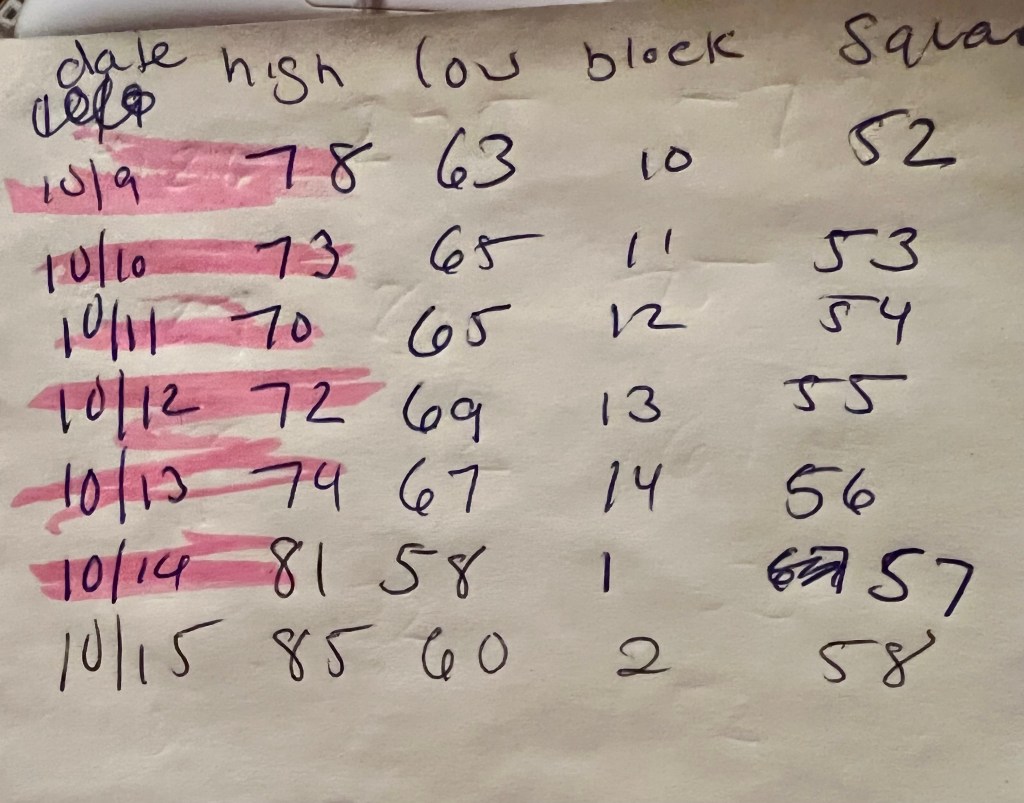 date high low block Squar
10/9 78 63 10 52
10/10 73 65 11 53
10/11 70 65 12 54
10/12 72 69 13 55
10/13 74 67 14 56
10/14 81 58 1 57
10/15 85 60 2 58